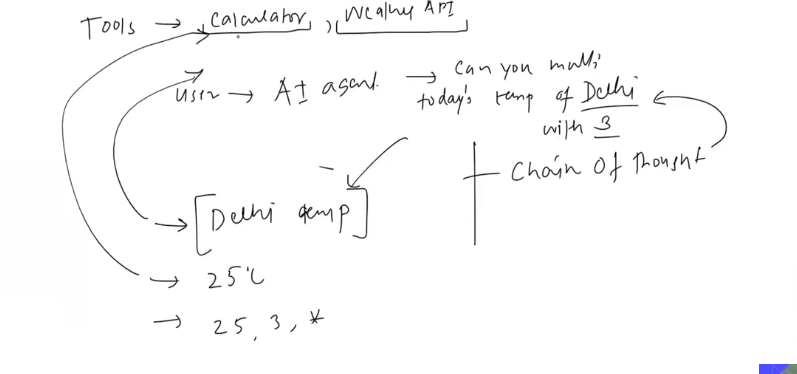 Tools → Calculator, Weather API
User → AI agent → Can you multi
today's temp of Delhi
with 3
Chain Of Thought
→ [Delhi temp]
→ 25°C
→ 25, 3, *